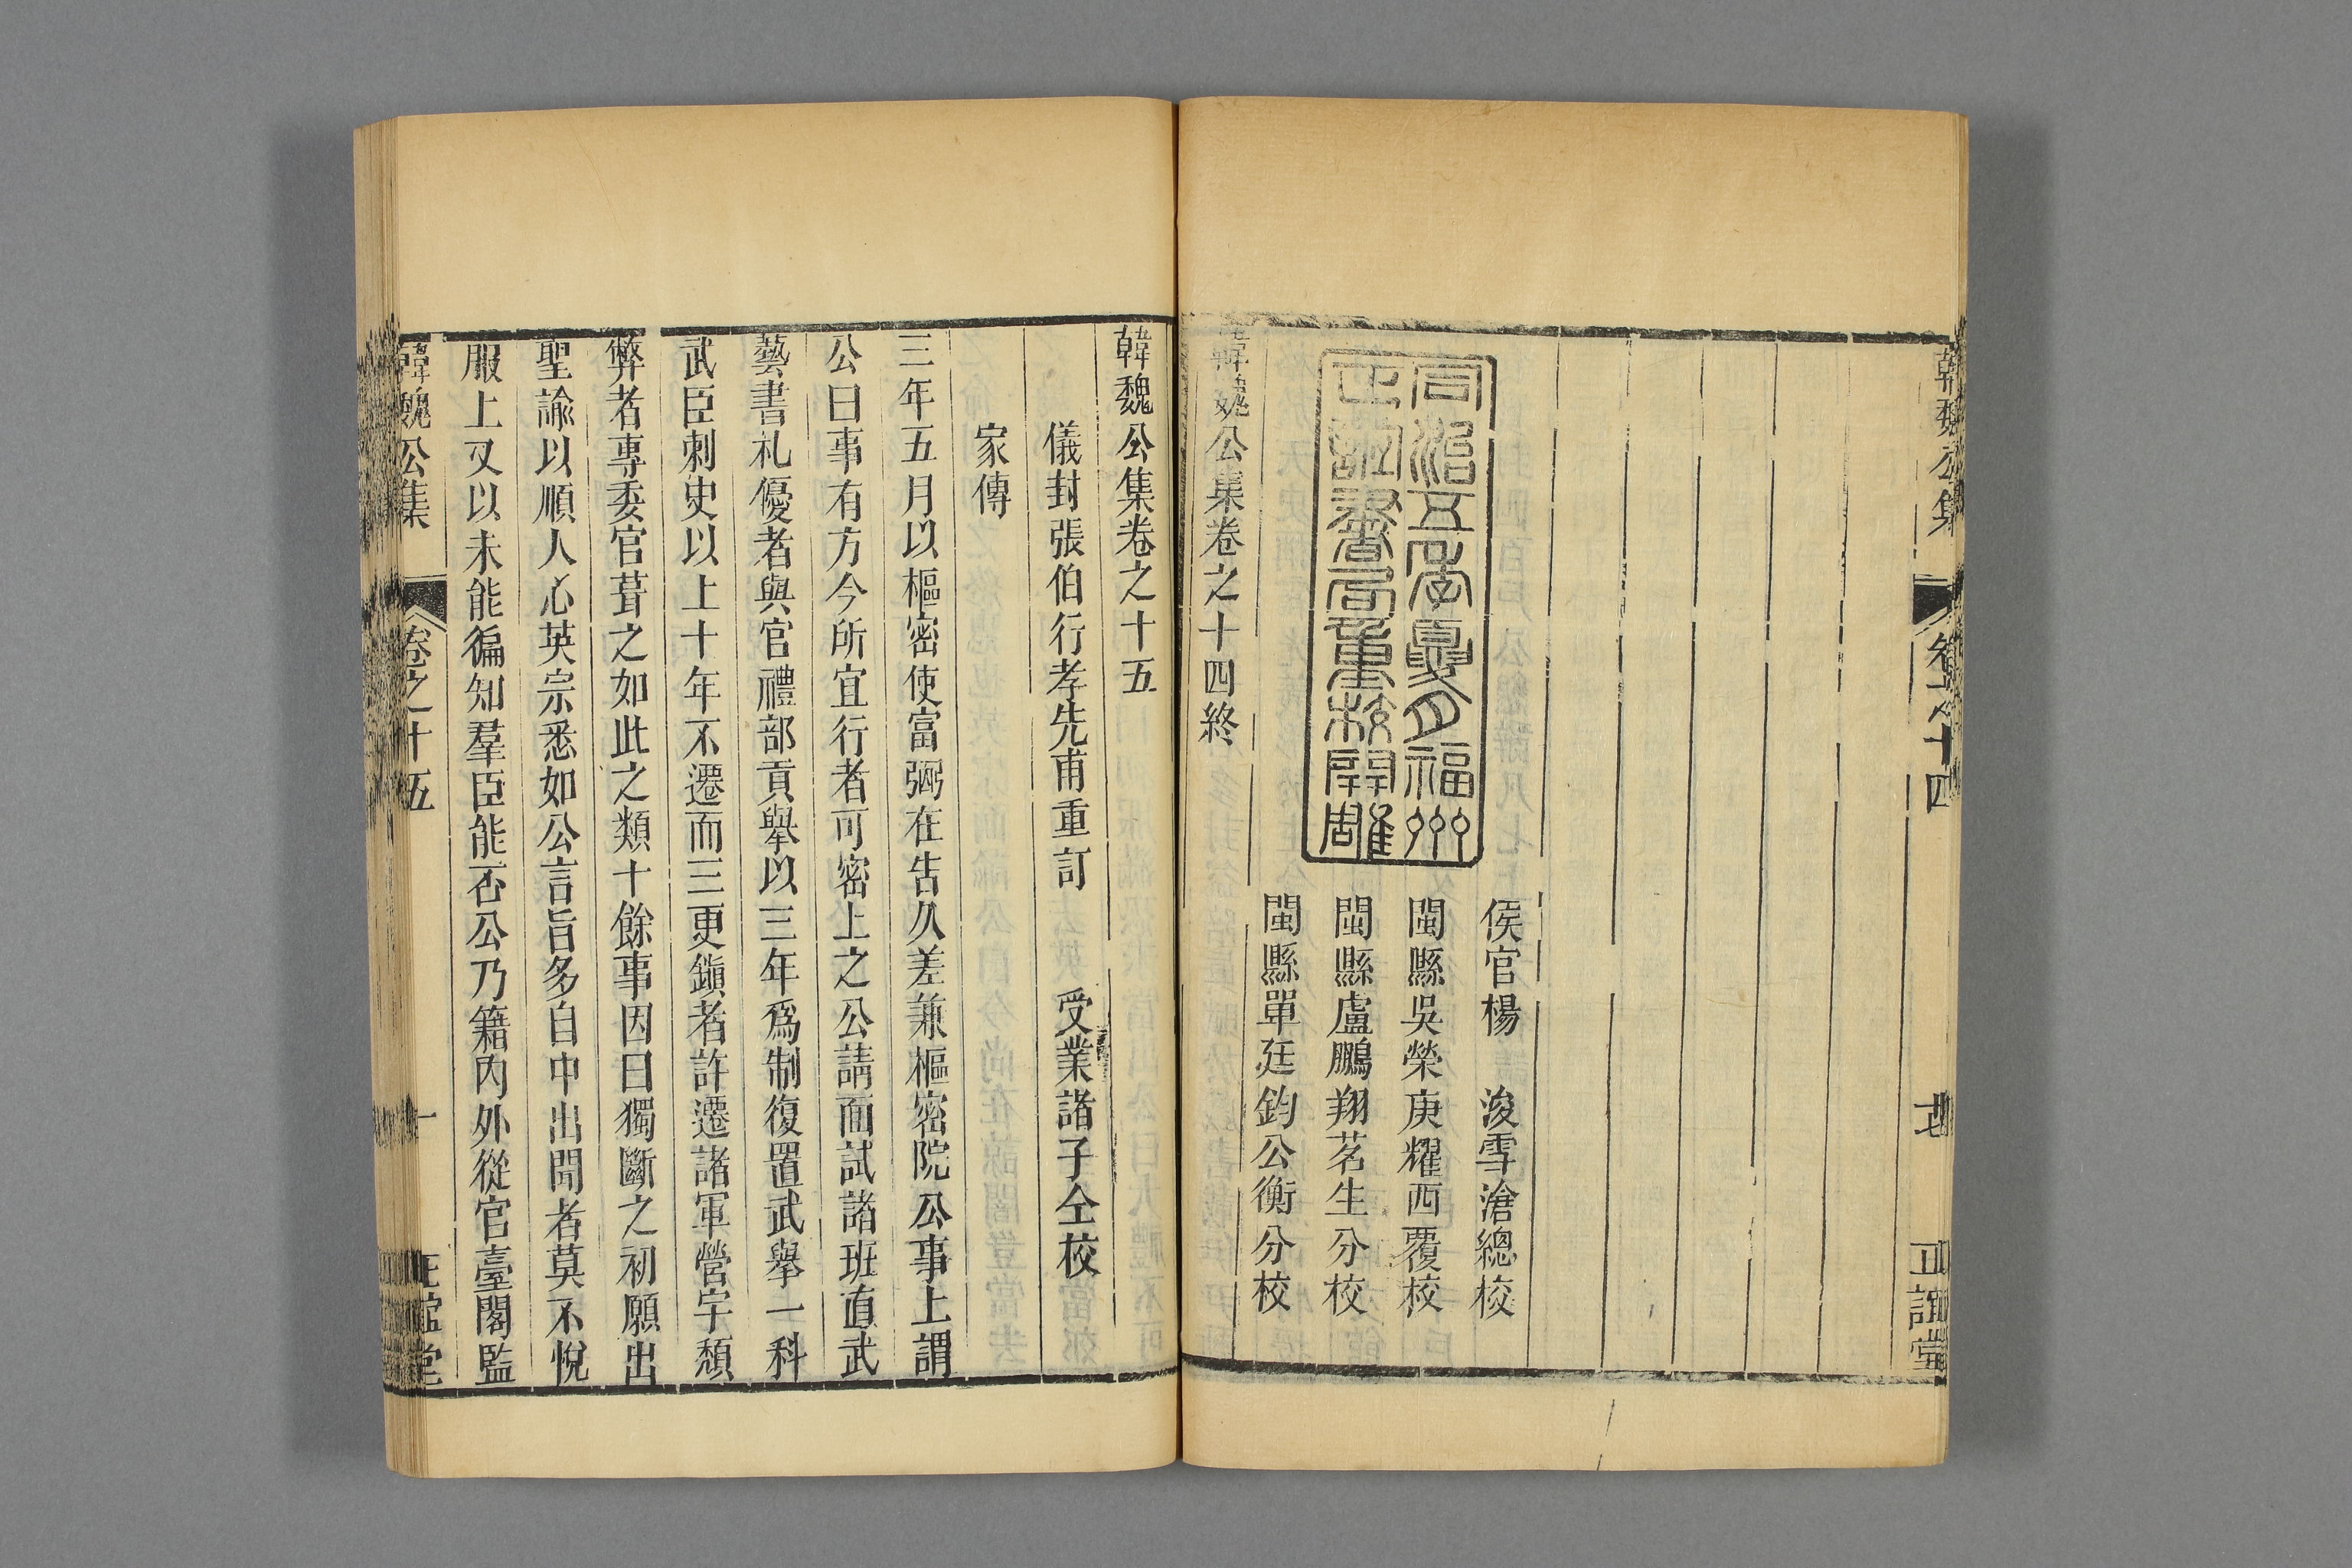 韓魏公集
卷之十四
十七
正誼堂
侯官楊　浚雪滄總校
閩縣吳榮庚耀西覆校
閩縣盧鵬翔茗生分校
閩縣單廷鈞公衡分校
同治五年夏月福州
正誼書局重校開雕
韓魏公集卷之十四終
韓魏公集卷之十五
儀封張伯行孝先甫重訂　受業諸子仝校
家傳
三年五月以樞密使富弼在告久差兼樞密院公事上謂
公曰事有方今所宜行者可密上之公請面試諸班直武
藝書札優者與官禮部貢舉以三年爲制復置武舉一科
武臣刺史以上十年不遷而三更鎭者許遷諸軍營宇頹
弊者專委官葺之如此之類十餘事因曰獨斷之初願出
聖諭以順人心英宗悉如公言旨多自中出聞者莫不悅
服上又以未能徧知羣臣能否公乃籍內外從官臺閣監
韓魏公集
卷之十五
一
正誼堂